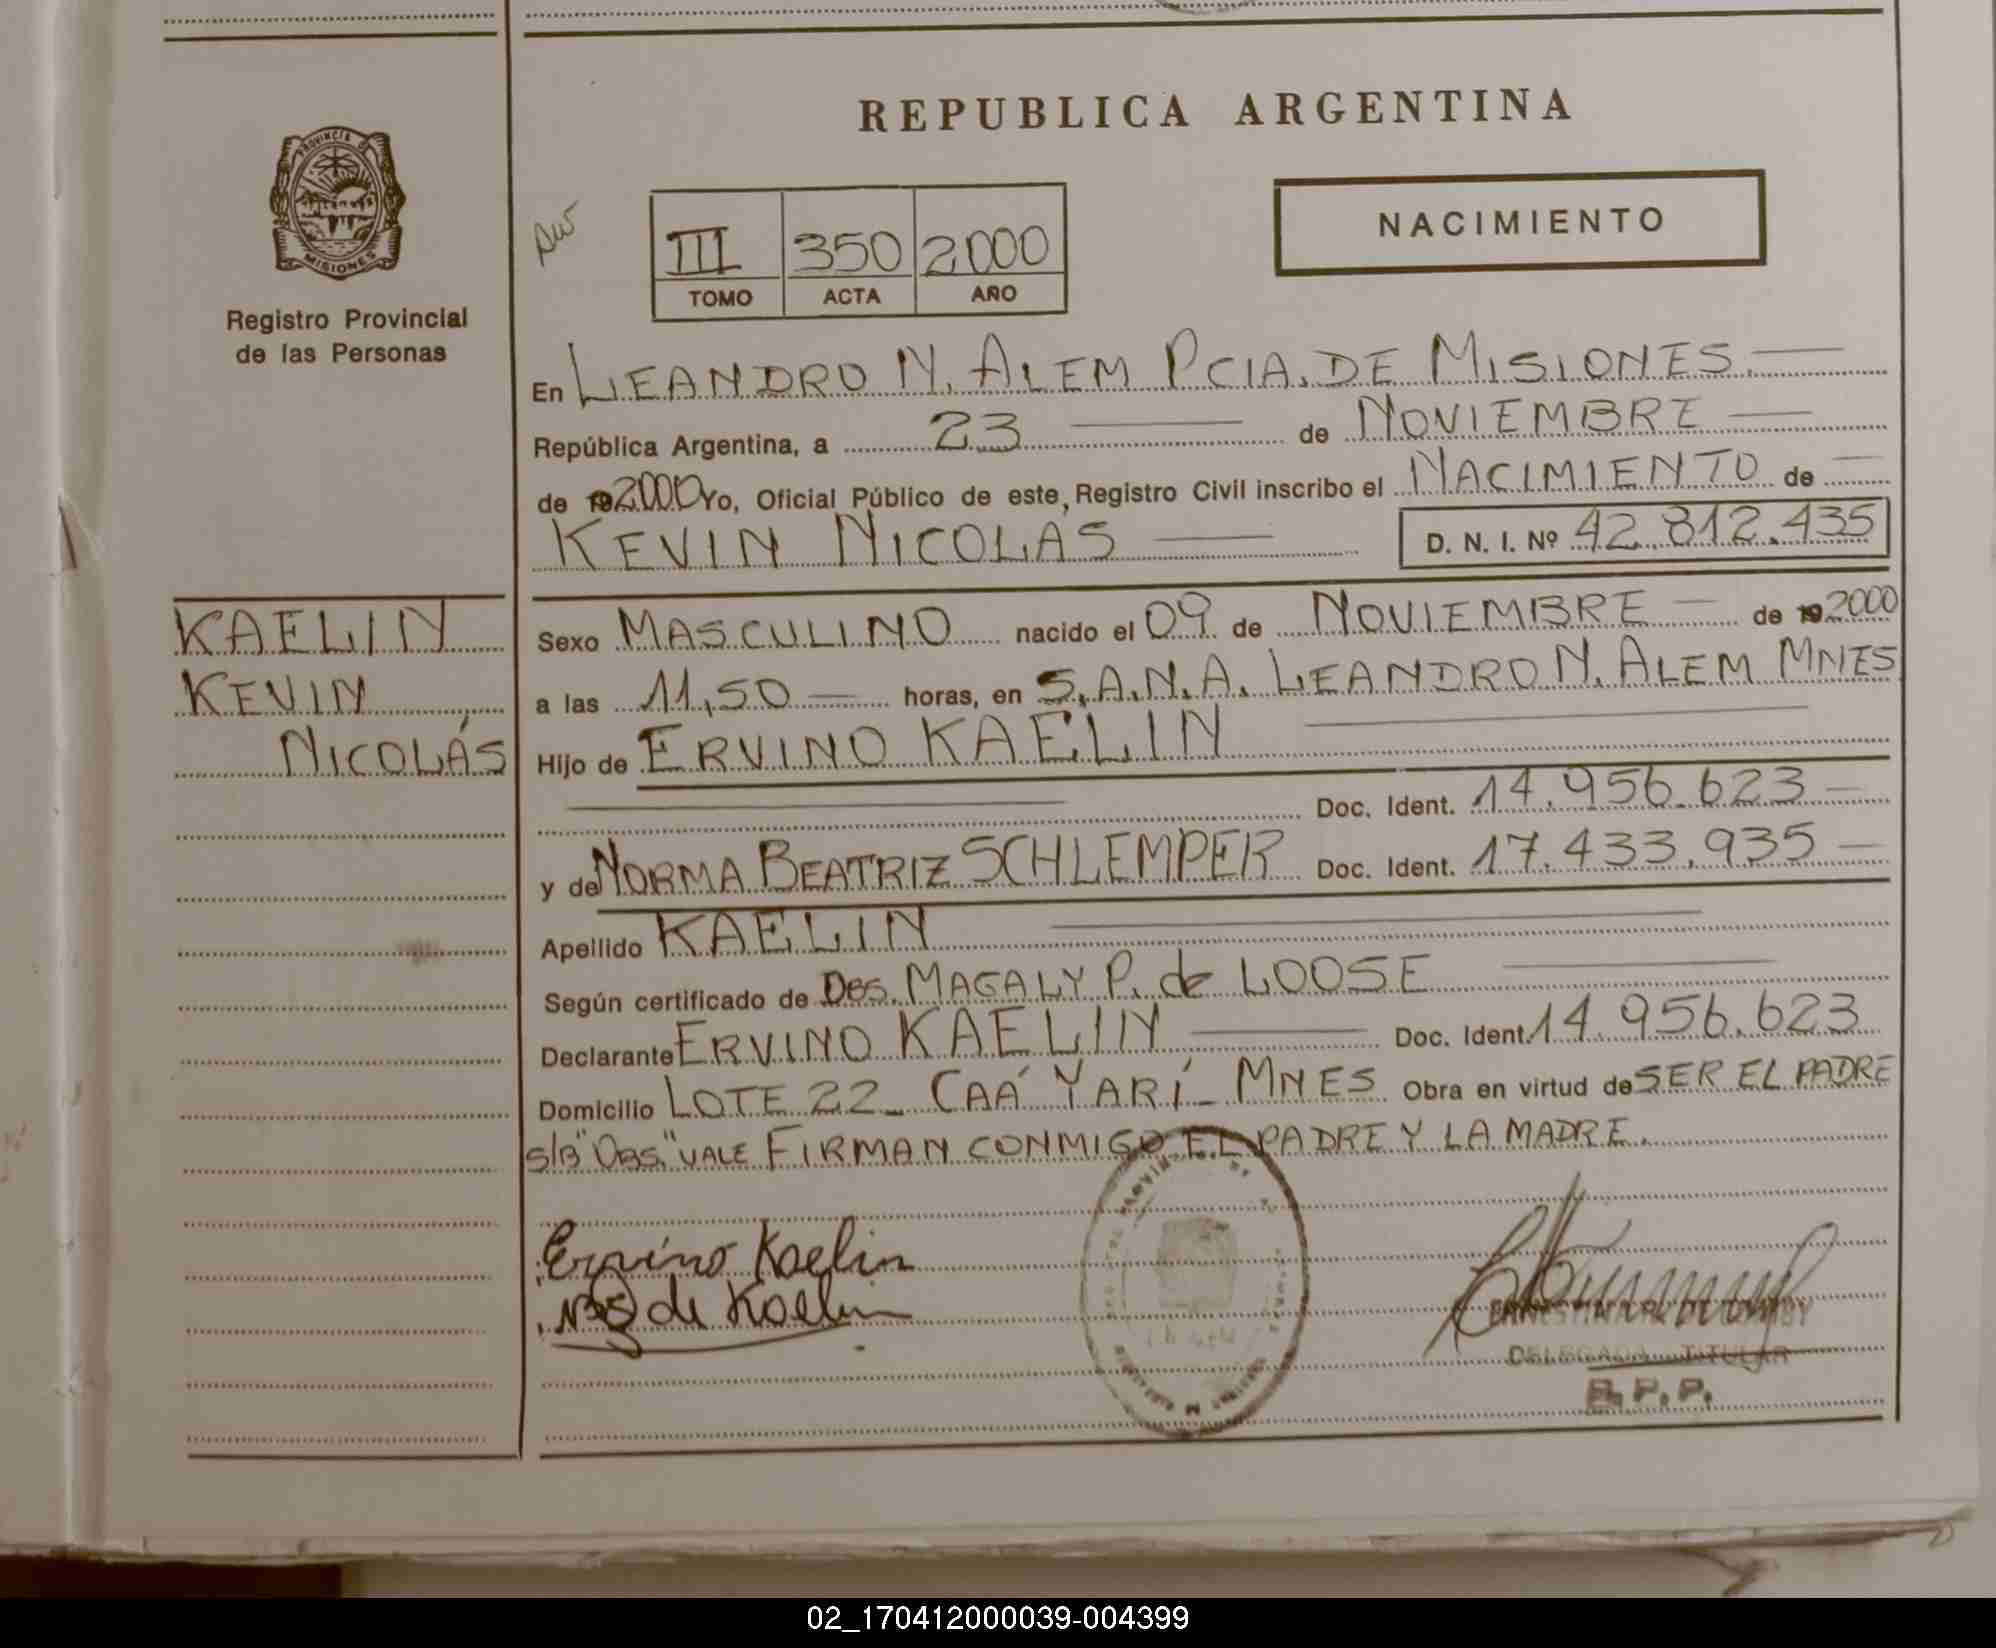 REPUBLICA ARGENTINA
PROVINCIA DE MISIONES
Registro Provincial
de las Personas
NACIMIENTO
III 350 2000
TOMO ACTA AÑO
En LEANDRO N. ALEM PCIA. DE MISIONES.
República Argentina, a 23 de NOVIEMBRE
de 19 2000 Yo, Oficial Público de este, Registro Civil inscribo el NACIMIENTO de
KEVIN NICOLAS D. N. I. Nº 42.812.435
KAELIN
KEVIN
NICOLÁS
Sexo MASCULINO nacido el 09 de NOVIEMBRE de 19 2000
a las 11,50 horas, en S.A.N.A. LEANDRO N. ALEM MNES
Hijo de ERVINO KAELIN
Doc. Ident. 14.956.623
y de NORMA BEATRIZ SCHLEMPER Doc. Ident. 17.433.935
Apellido KAELIN
Según certificado de OBS. MAGALY P. de LOOSE
Declarante ERVINO KAELIN Doc. Ident. 14.956.623
Domicilio LOTE 22_ CAÁ YARÍ_ MNES Obra en virtud de SER EL PADRE
S/B "OBS." VALE FIRMAN CONMIGO EL PADRE Y LA MADRE.
Ervino Kaelin
de Kaelin
DELEGADA TITULAR
R. P. P.
02_170412000039-004399